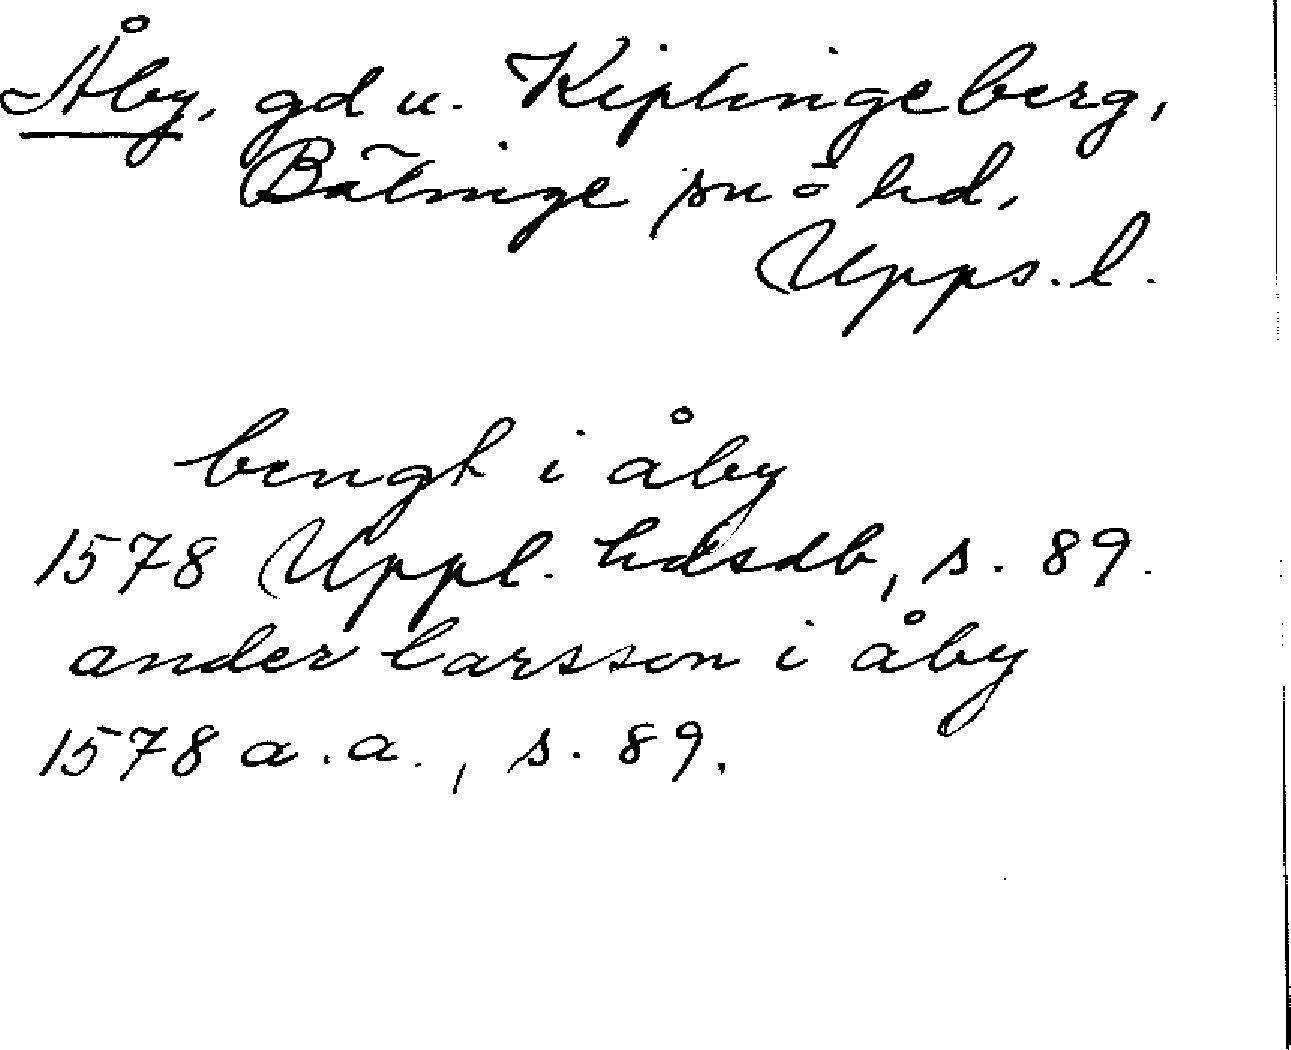 Åby, gd u. Kiplingeberg,
Bälinge sn o hd,
Upps. l.
bengt i åby
1578 Uppl. hdsdb, s. 89.
ander larsson i åby
1578 a.a., s. 89.